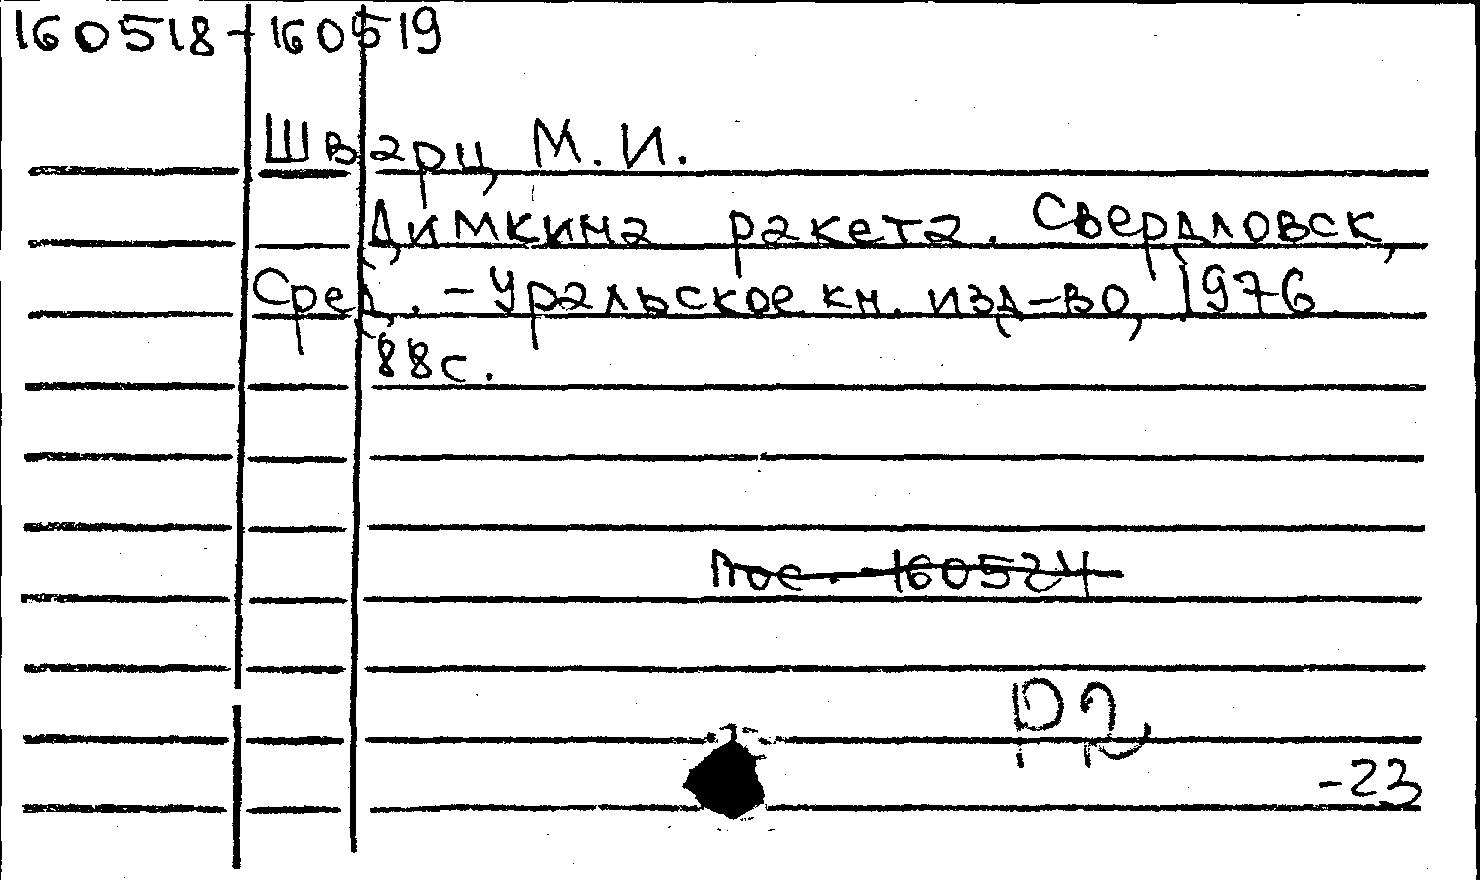 160518-160519
Шварц М. И.
Димкина ракета. Свердловск,
Сред.-Уральское кн. изд-во, 1976.
88с.
Пос. 160524
-23